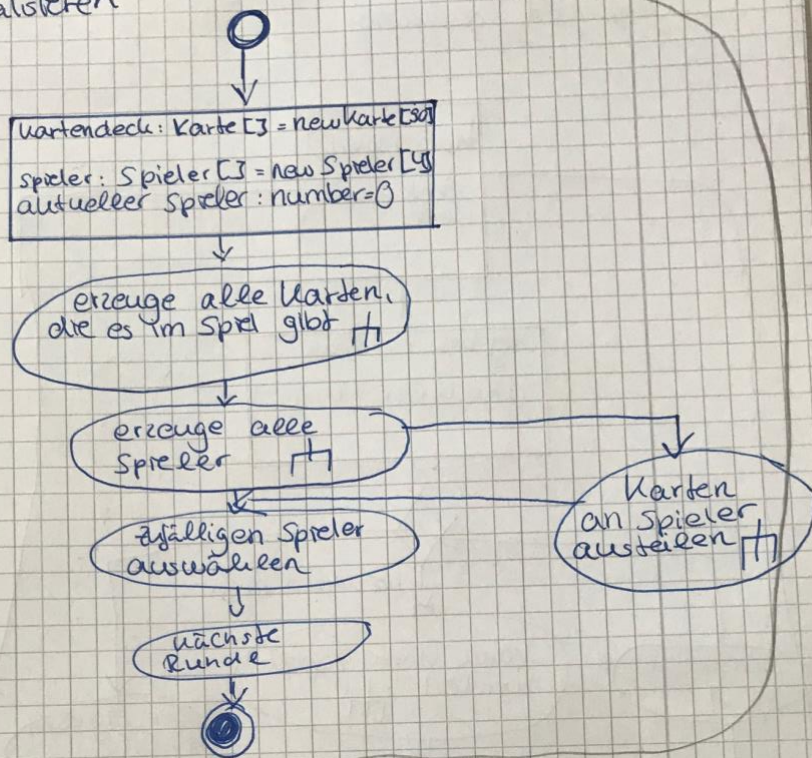 alisieren
Kartendeck: Karte[] = new Karte[30]
spieler: Spieler[] = new Spieler[4]
aktueller Spieler: number=0
erzeuge alle Karten,
die es im Spiel gibt
erzeuge alle
Spieler
Karten
an Spieler
austeilen
zufälligen Spieler
auswählen
nächste
Runde